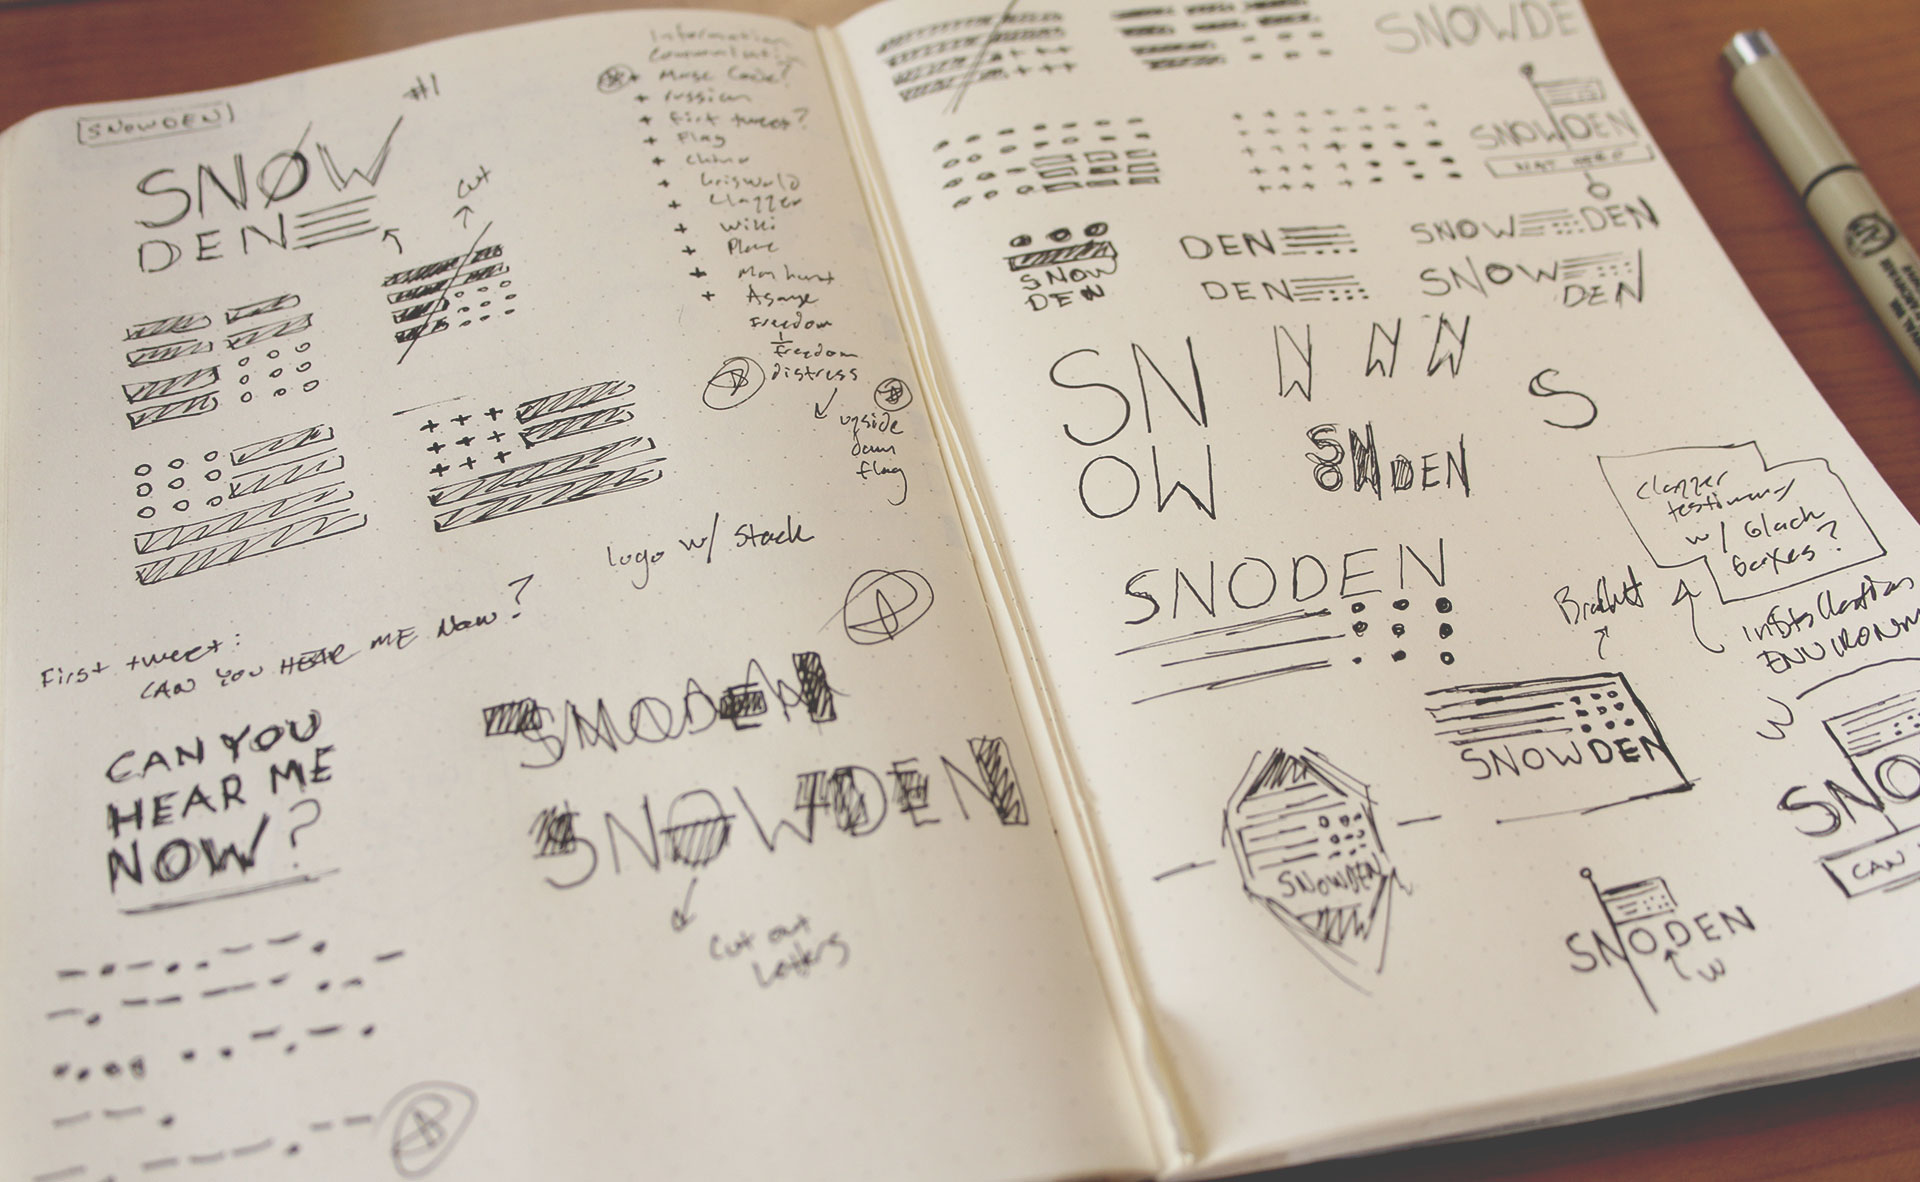 [SNOWDEN]
#1
SNOW
DEN
cut
Information
Communication
Morse Code?
+ russian
+ First tweet?
+ Flag
+ China
+ Griswold
+ Clapper
+ Wiki
+ Plane
+ Man hunt
+ Asange
Freedom
Freedom
distress
upside
down
flag
logo w/ Stack
First tweet:
CAN YOU HEAR ME Now?
CAN YOU
HEAR ME
NOW?
SNODEN
SNOWDEN
Cut out
Letters
SNOWDE
SNOWDEN
SNOW
DEN
DEN
DEN
SNOW DEN
SNOW
DEN
SN
OW
N N N
S
SNOWDEN
SNODEN
Clapper
testimony
w/ black
boxes?
Installation
ENVIRONM
SNOWDEN
SNOWDEN
SNO
CAN
SNODEN
W